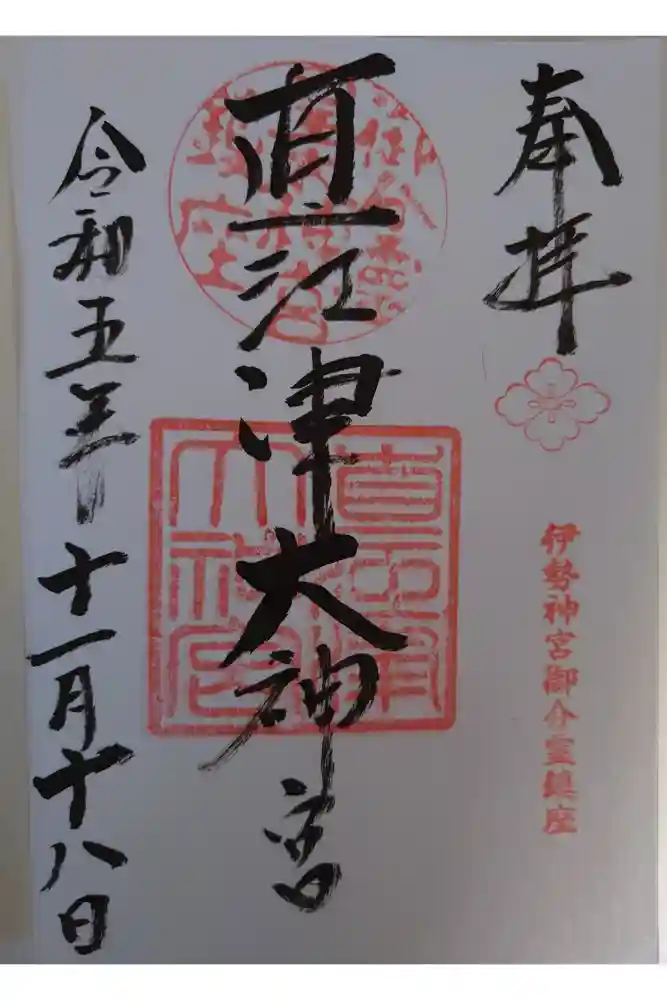 奉拝
伊勢神宮御分霊鎮座
直江津大神宮
直江津大神宮
令和五年十一月十八日